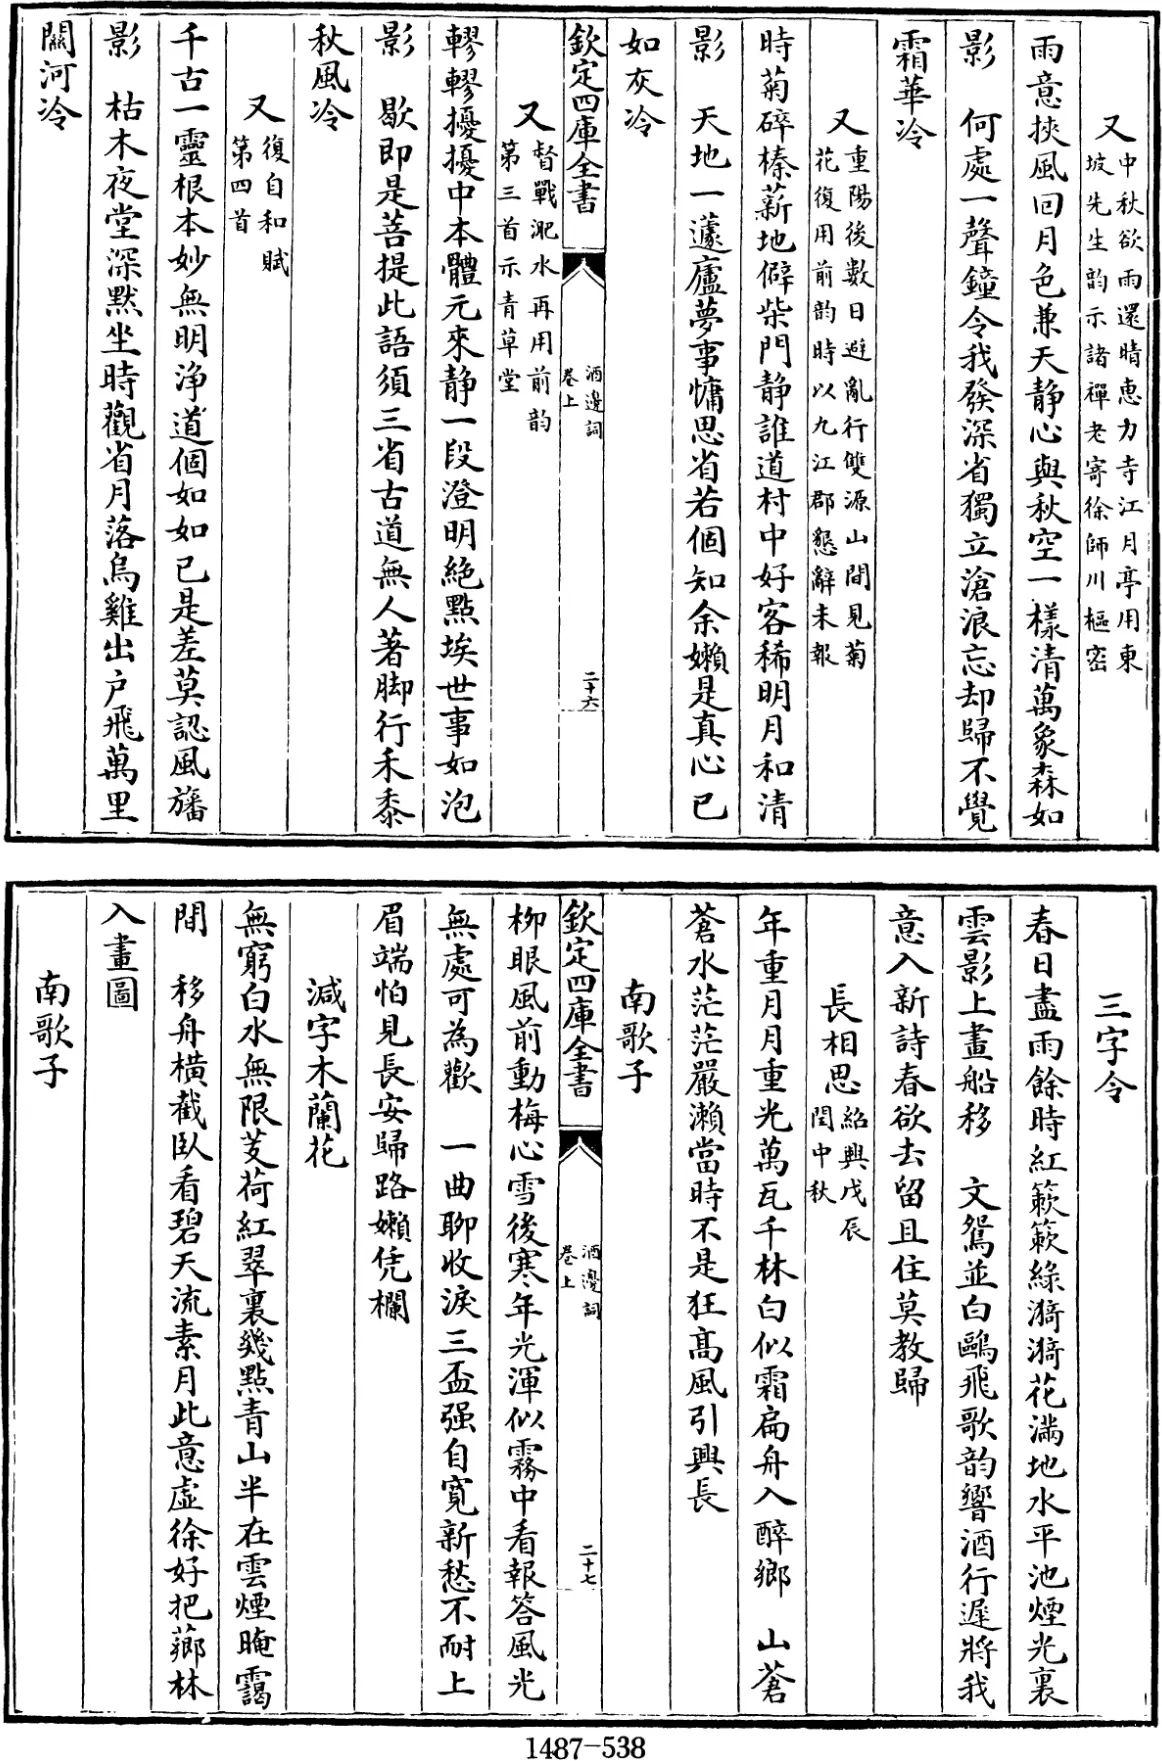 又中秋欲雨還晴惠力寺江月亭用東
坡先生韵示諸禪老寄徐師川樞密
雨意挾風回月色兼天静心與秋空一樣清萬象森如
影　何處一聲鐘令我發深省獨立滄浪忘却歸不覺
霜華冷
又重陽後數日避亂行雙源山間見菊
花復用前韵時以九江郡懇辭未報
時菊碎榛薪地僻柴門静誰道村中好客稀明月和清
影　天地一蘧廬夢事慵思省若個知余嬾是真心已
如灰冷
欽定四庫全書
酒邊詞
卷上
二十六
又督戰淝水再用前韵
第三首示青草堂
轇轇擾擾中本體元來静一段澄明絶點埃世事如泡
影　歇即是菩提此語須三省古道無人著脚行禾黍
秋風冷
又復自和賦
第四首
千古一靈根本妙無明浄道個如如已是差莫認風旛
影　枯木夜堂深默坐時觀省月落烏雞出户飛萬里
關河冷
三字令
春日盡雨餘時紅簌簌綠漪漪花滿地水平池煙光裏
雲影上畫船移　文鴛並白鷗飛歌韵響酒行遲將我
意入新詩春欲去留且住莫教歸
長相思紹興戊辰
閏中秋
年重月月重光萬瓦千林白似霜扁舟入醉鄉　山蒼
蒼水茫茫嚴瀬當時不是狂髙風引興長
南歌子
欽定四庫全書
酒邊詞
卷上
二十七
柳眼風前動梅心雪後寒年光渾似霧中看報答風光
無處可為歡　一曲聊收淚三盃强自寛新愁不耐上
眉端怕見長安歸路嬾凭欄
減字木蘭花
無窮白水無限芰荷紅翠裏幾點青山半在雲煙晻靄
間　移舟橫截臥看碧天流素月此意虚徐好把薌林
入畫圖
南歌子
1487-538